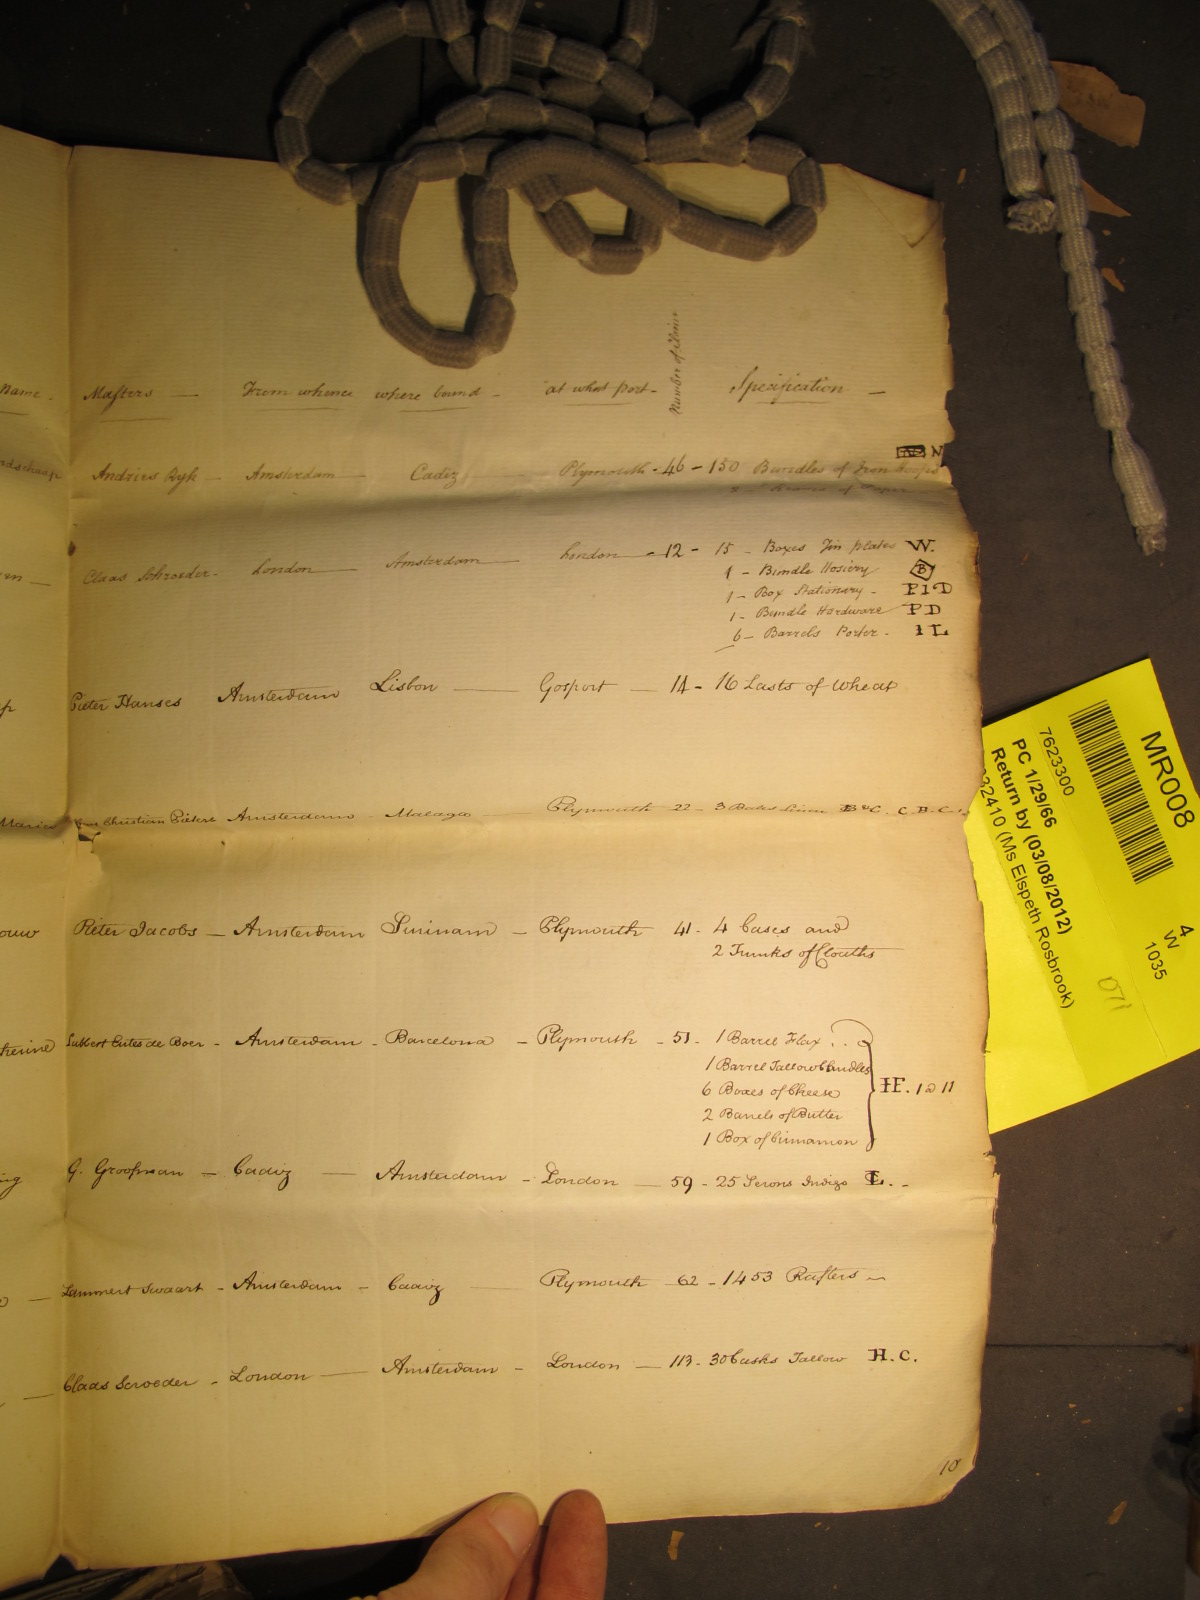 Name - Masters — From whence where bound - at what port - Number of Claim Specification —
Andries Dyk — Amsterdam — Cadiz Plymouth - 46 - 150 Bundles of Iron hoops N
8 - Reams of Paper
Claas Schroeder - London — Amsterdam London - 12 - 15 - Boxes Tin plates W.
1 - Bundle Hosiery B
1 - Box Stationary - PID
1 - Bundle Hardware PD
6 - Barrels Porter - IL
Pieter Hanses Amsterdam Lisbon — Gosport — 14 - 16 Lasts of Wheat
Maria Christian Pieters Amsterdam - Malaga — Plymouth - 22 - 3 Bales Linen B&C. C.B.C.
ouw Pieter Jacobs — Amsterdam Surinam — Plymouth 41 - 4 Cases and
2 Trunks of Clouths
therine Lubbert Eutes de Boer - Amsterdam - Barcelona - Plymouth - 51 - 1 Barrel Flax
1 Barrel Tallow Candles
6 Boxes of Cheese IF. 1 a 11
2 Barrels of Butter
1 Box of Cinnamon
ng G. Groofman — Cadiz — Amsterdam - London — 59 - 25 Serons Indigo L. -
— Lammert Swaart - Amsterdam - Cadiz — Plymouth - 62 - 1453 Rafters
— Claas Scroeder - London — Amsterdam - London — 113 - 30 Casks Tallow H.C.
10
MR008
7623300
PC 1/29/66
Return by (03/08/2012)
32410 (Ms Elspeth Rosbrook)
4
W
1035
071